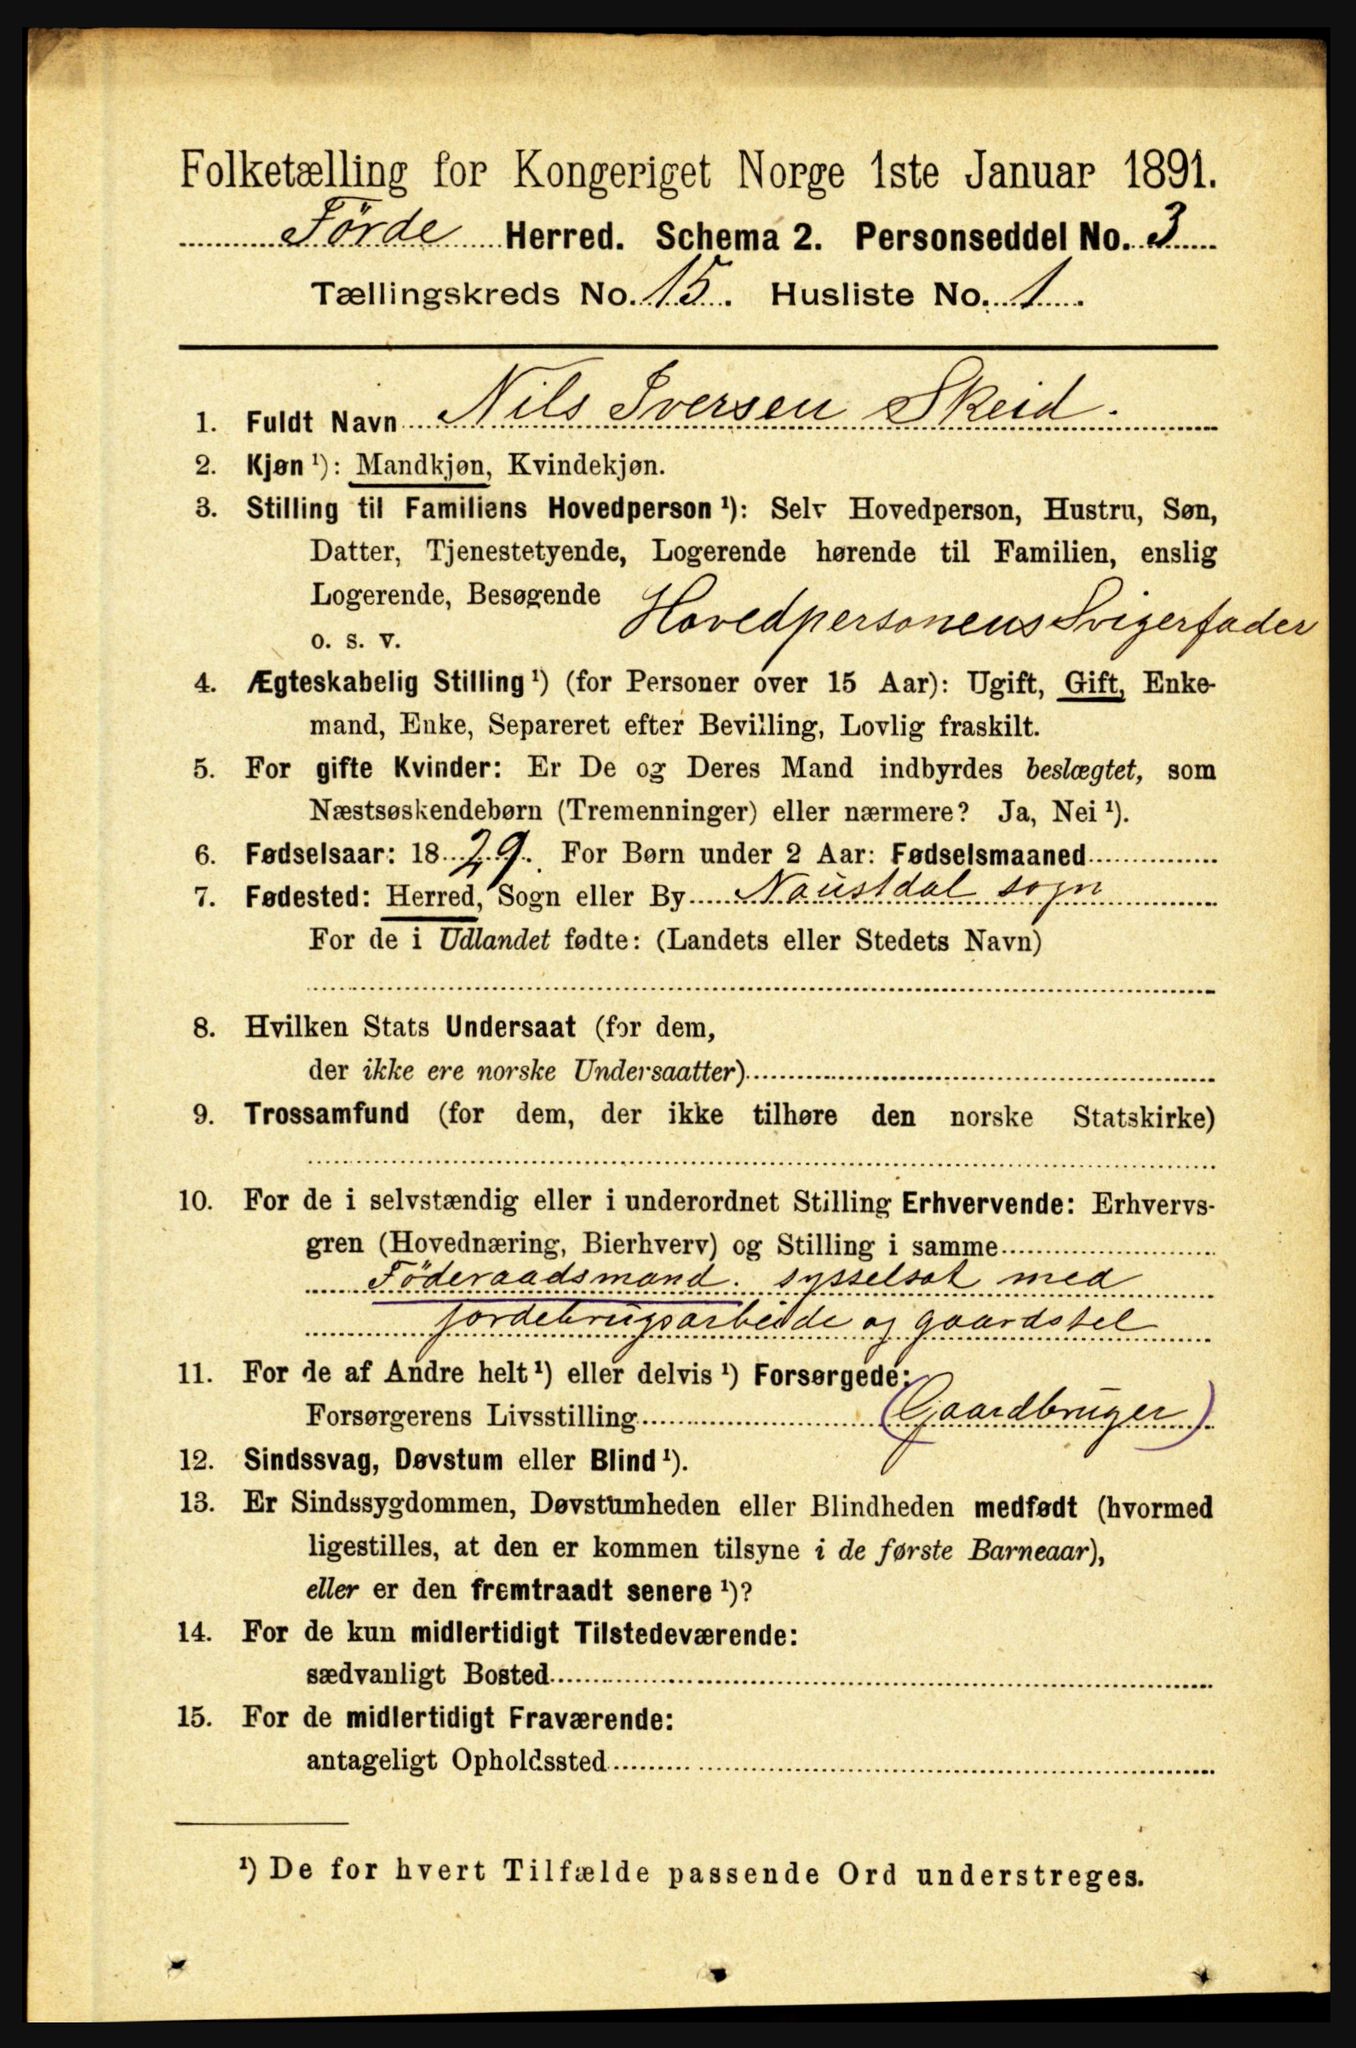 Folketælling for Kongeriget Norge 1ste Januar 1891.
Förde Herred. Schema 2. Personseddel No. 3
Tællingskreds No. 15. Husliste No. 1.
1. Fuldt Navn Nils Iversen Skeid.
2. Kjøn ¹): Mandkjøn, Kvindekjøn.
3. Stilling til Familiens Hovedperson ¹): Selv Hovedperson, Hustru, Søn,
Datter, Tjenestetyende, Logerende hørende til Familien, enslig
Logerende, Besøgende
o. s. v. Hovedpersonens Svigerfader
4. Ægteskabelig Stilling ¹) (for Personer over 15 Aar): Ugift, Gift, Enke-
mand, Enke, Separeret efter Bevilling, Lovlig fraskilt.
5. For gifte Kvinder: Er De og Deres Mand indbyrdes beslægtet, som
Næstsøskendebørn (Tremenninger) eller nærmere? Ja, Nei ¹).
6. Fødselsaar: 1829. For Børn under 2 Aar: Fødselsmaaned
7. Fødested: Herred, Sogn eller By Naustdal sogn
For de i Udlandet fødte: (Landets eller Stedets Navn)
8. Hvilken Stats Undersaat (for dem,
der ikke ere norske Undersaatter)
9. Trossamfund (for dem, der ikke tilhøre den norske Statskirke)
10. For de i selvstændig eller i underordnet Stilling Erhvervende: Erhvervs-
gren (Hovednæring, Bierhverv) og Stilling i samme
Föderaadsmand. sysselsat med
jordebrugsarbeide og gaardstel
11. For de af Andre helt ¹) eller delvis ¹) Forsørgede:
Forsørgerens Livsstilling (Gaardbruger)
12. Sindssvag, Døvstum eller Blind ¹).
13. Er Sindssygdommen, Døvstumheden eller Blindheden medfødt (hvormed
ligestilles, at den er kommen tilsyne i de første Barneaar),
eller er den fremtraadt senere ¹)?
14. For de kun midlertidigt Tilstedeværende:
sædvanligt Bosted
15. For de midlertidigt Fraværende:
antageligt Opholdssted
¹) De for hvert Tilfælde passende Ord understreges.